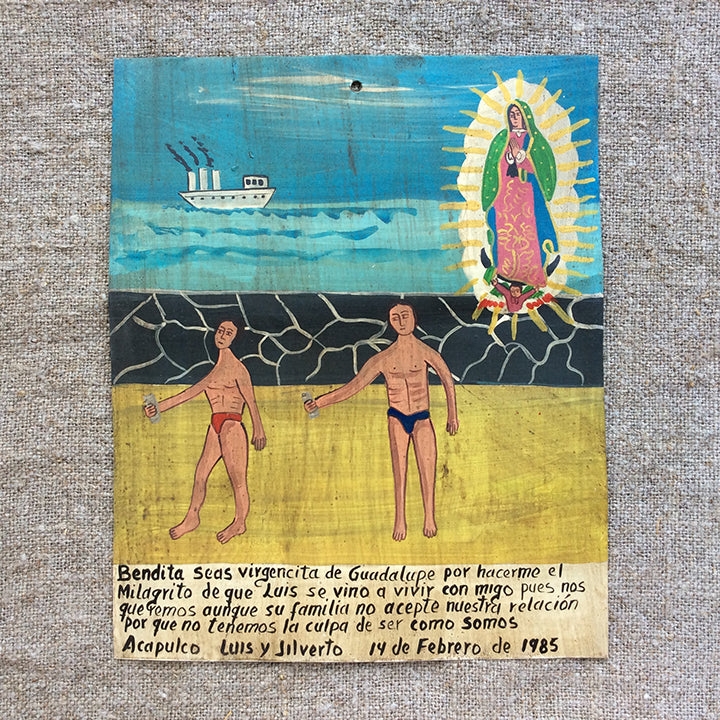 Bendita seas virgencita de Guadalupe por hacerme el
Milagrito de que Luis se vino a vivir con migo pues nos
queremos aunque su familia no acepte nuestra relación
por que no tenemos la culpa de ser como somos
Acapulco Luis y Jilverto 14 de Febrero de 1985